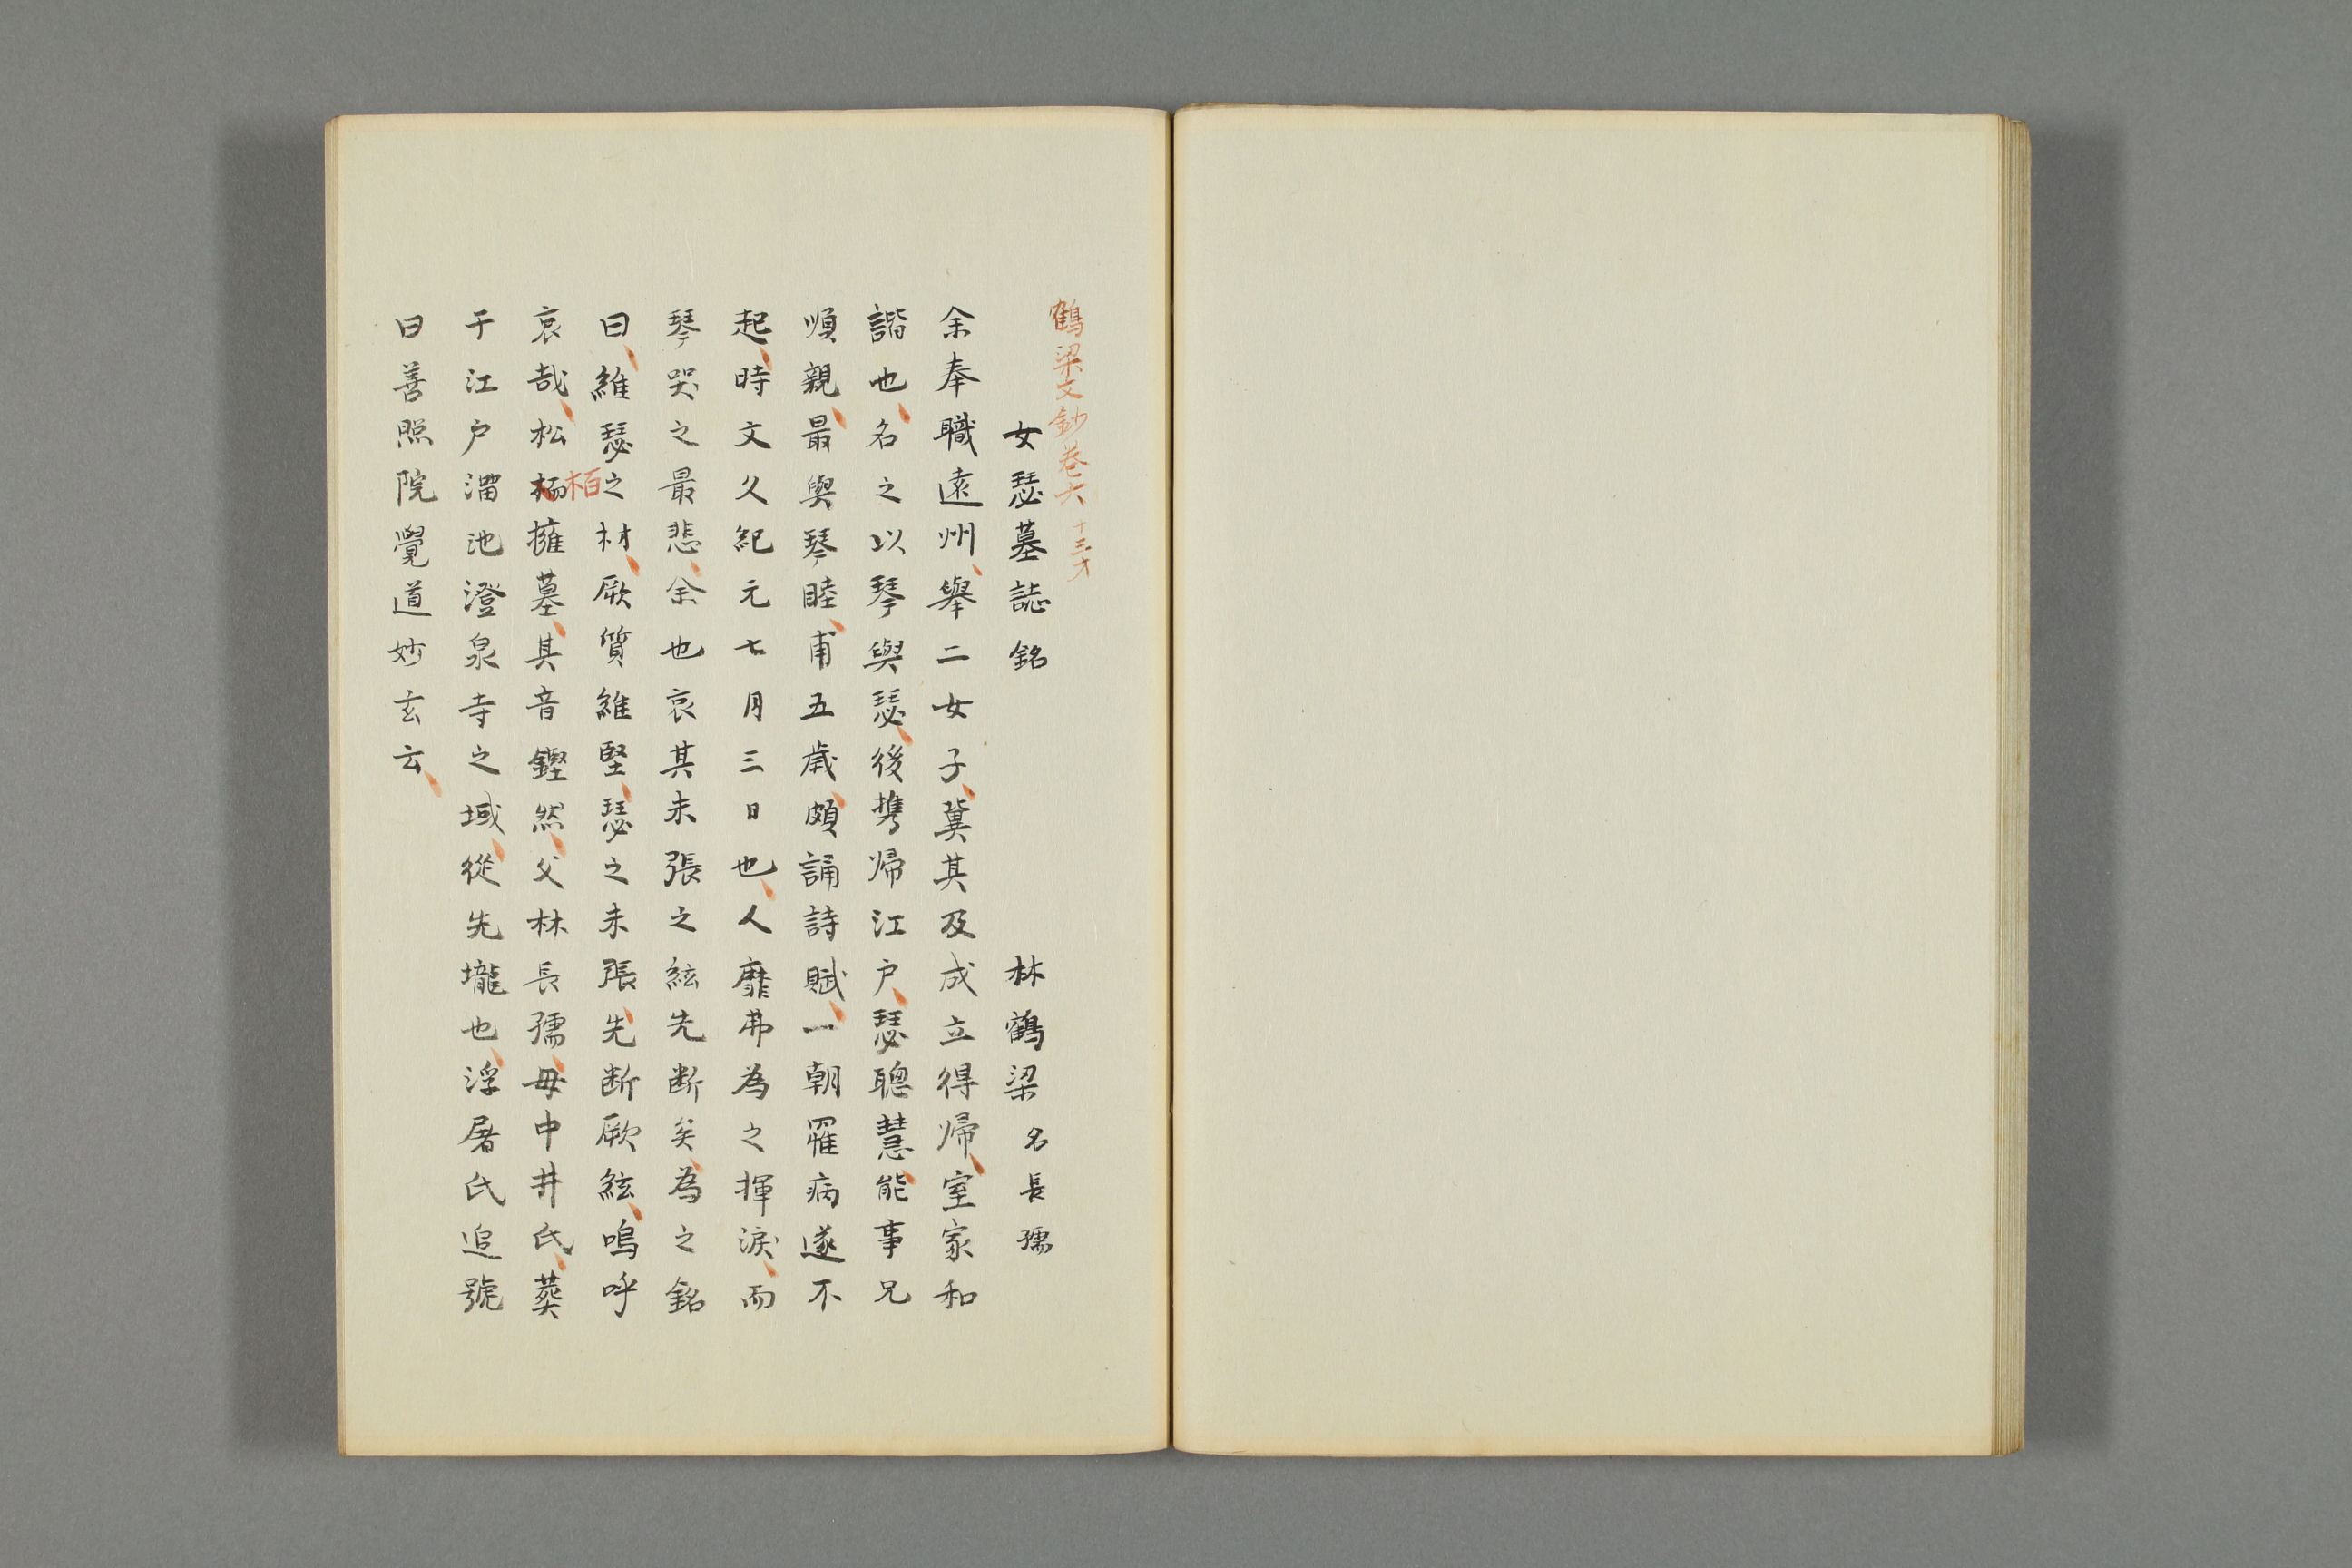 鶴梁文鈔巻六 十三オ
女瑟墓誌銘 林鶴梁 名長孺
余奉職遠州、舉二女子、冀其及成立得帰、室家和
諧也、名之以琴與瑟、後携帰江戸、瑟聰慧、能事兄
順親、最與琴睦、甫五歳、頗誦詩賦、一朝罹病遂不
起、時文久紀元七月三日也、人靡弗為之揮涙、而
琴哭之最悲、余也哀其未張之絃先断矣、為之銘
曰、維瑟之材、厥質維堅、瑟之未張、先断厥絃、嗚呼
哀哉、松柏擁墓、其音鏗然、父林長孺、毋中井氏、葬
于江戸澑池澄泉寺之域、從先壠也、浮屠氏追號
曰善照院覺道妙玄云、